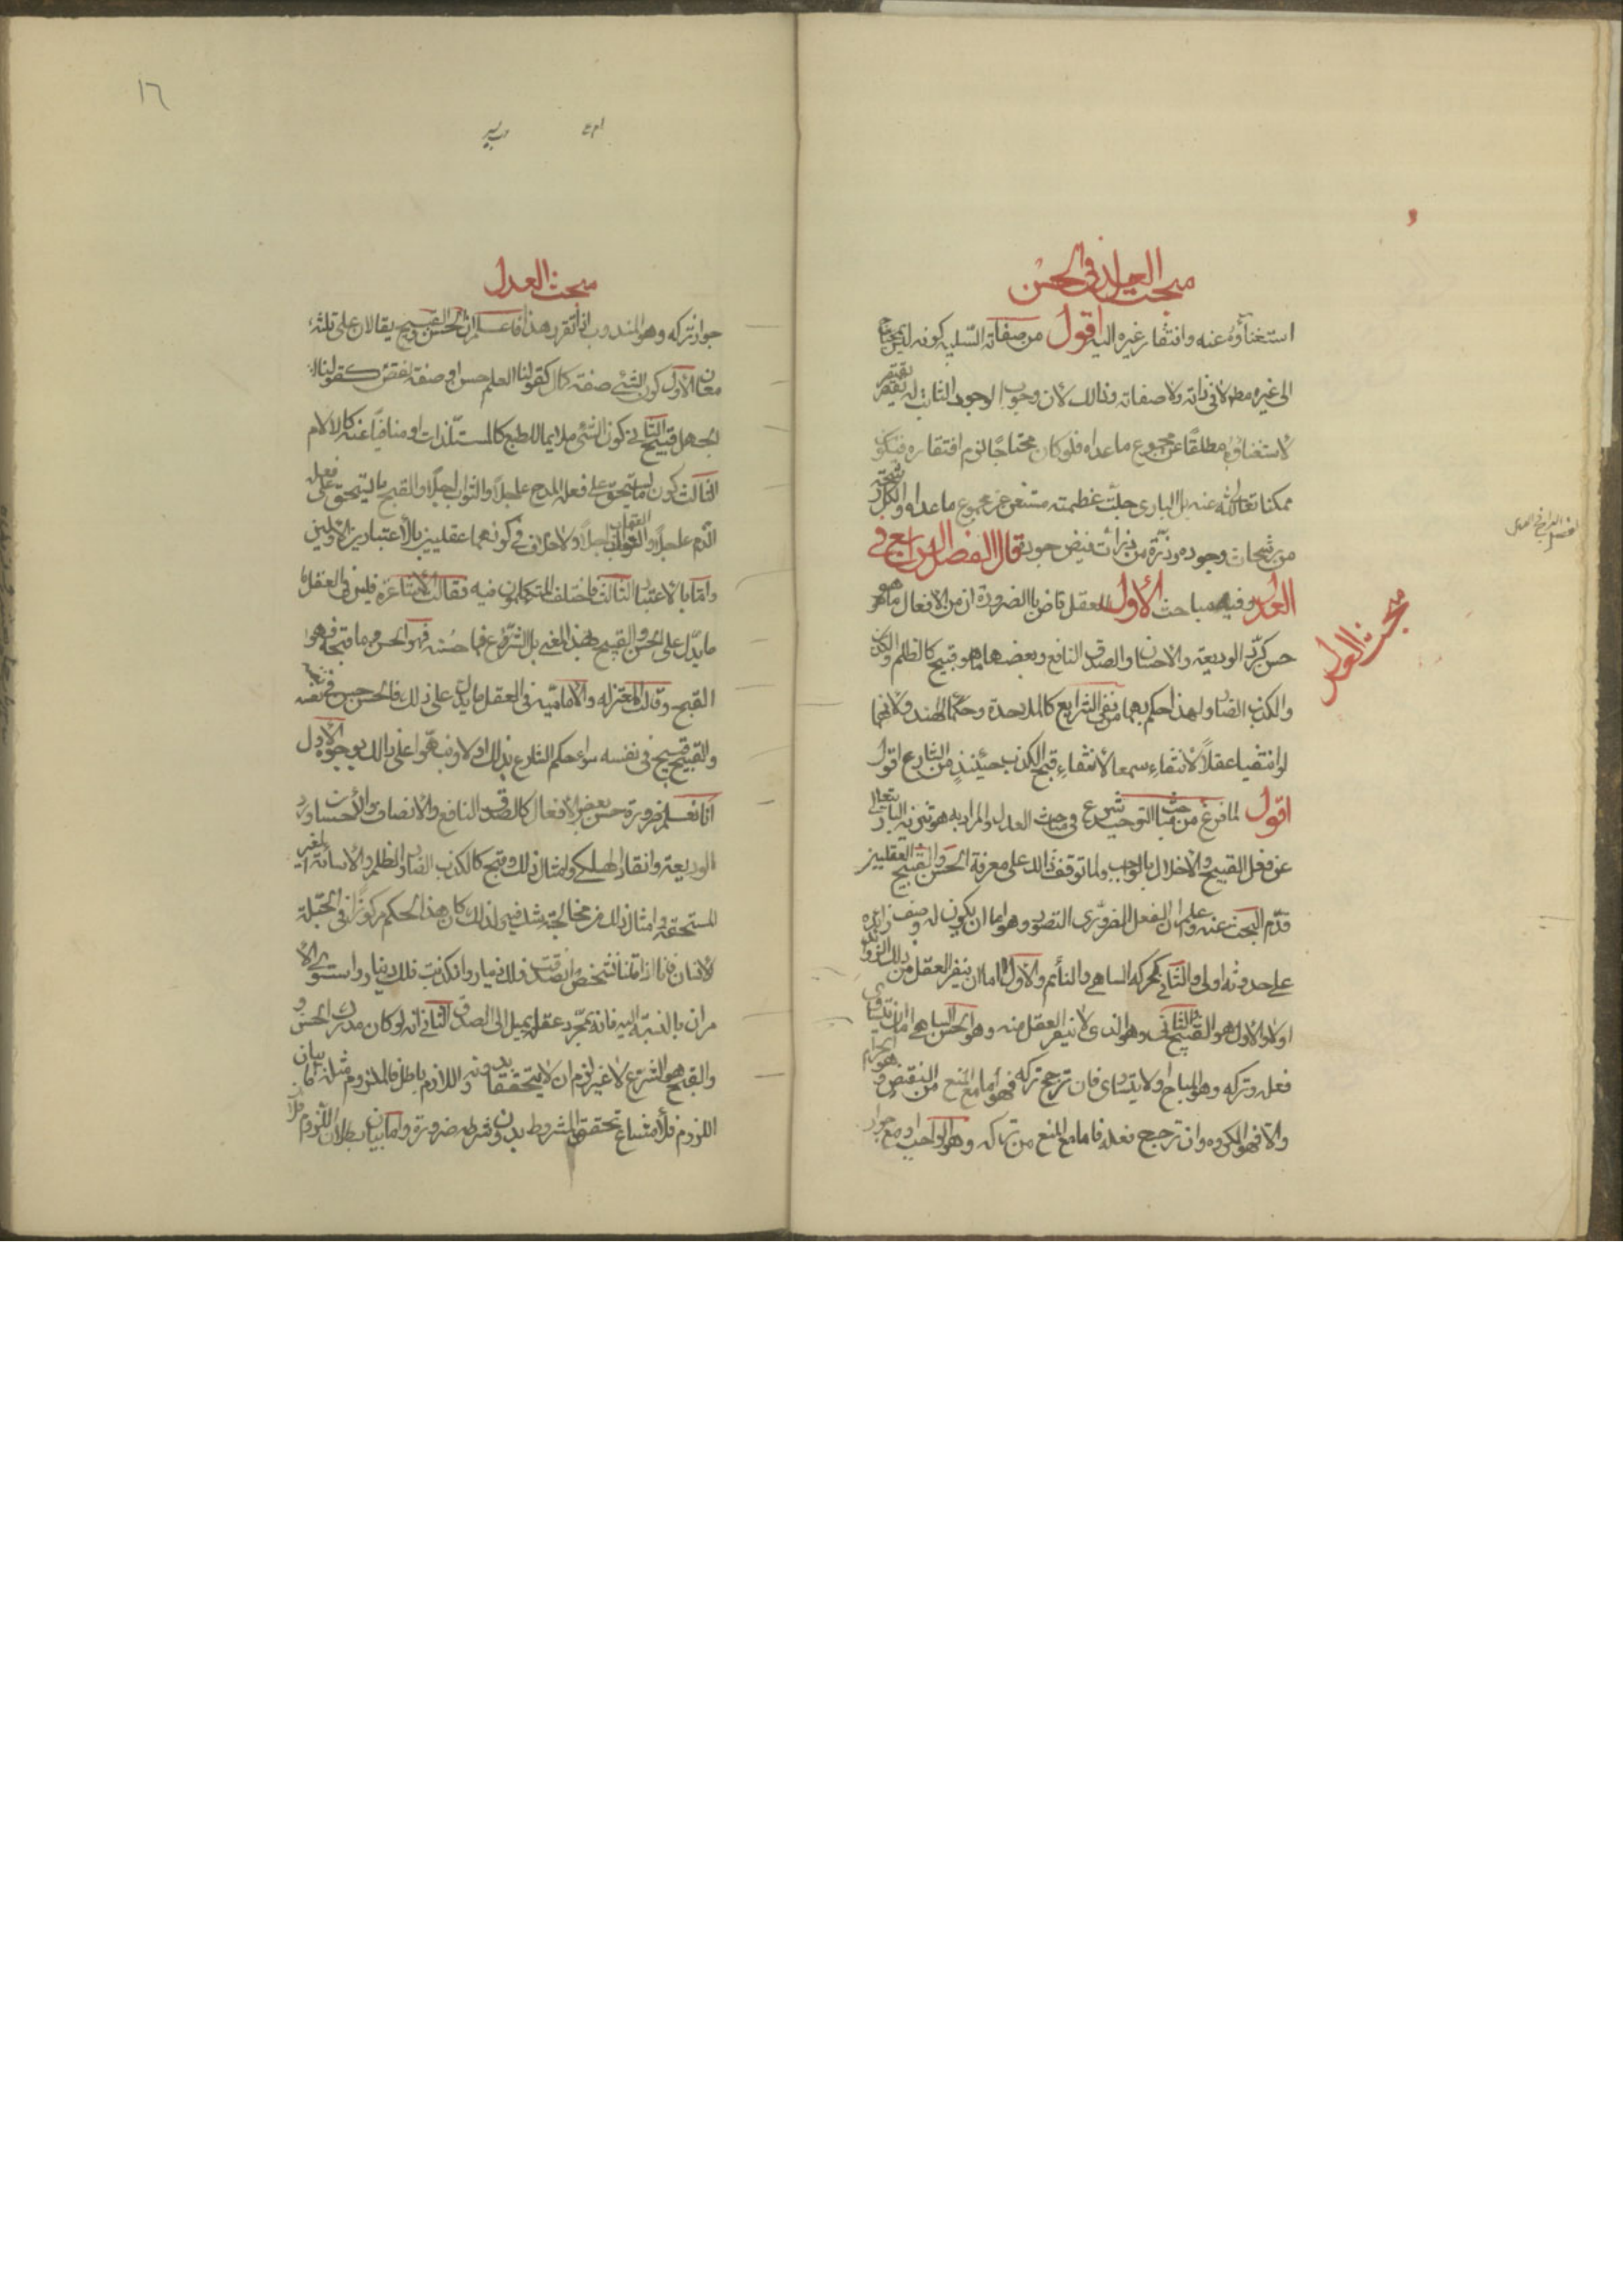 مبحث العدل فی الحسن
استغناؤه عنه وافتقار غیره الیه اقول من صفاته السلبیه کونه لیس بمحتاج
الی غیره مطلقا لا فی ذاته ولا صفاته وذالک لان وجوب الوجود الثابت له یقتضی
لاستغناؤه مطلقاً عن مجموع ما عداه فلو کان محتاجًا لزم افتقاره فیکون
ممکنا تعالی الله عنه بل الباری جلّت عظمته مستغن عن مجموع ما عداه والکل رشحة
من رشحات وجوده وذرّة من ذرات فیض جوده قال الفصل الرابع فی
العدل وفیه مباحث الاول العقل قاض بالضرورة ان من الافعال ما هو
حسن کردّ الودیعة والاحسان والصدق النافع وبعضها ما هو قبیح کالظلم
والکذب الضار ولهذا حکم بهما من نفی الشرایع کالملاحدة وحکماء الهند ولانهما
لو انتفیا عقلاً لانتفاء سمعا لانتفاء قبح الکذب حینئذٍ من الشارع اقول
اقول لما فرغ من مباحث التوحید شرع فی مباحث العدل والمراد به هو تنزیه الباری تعالی
عن فعل القبیح والاخلال بالواجب ولما توقف ذالک علی معرفة الحسن والقبیح العقلیین
قدّم البحث عنه وعلم ان الفعل الضروری التصور وهو اما ان یکون له وصف زاید
علی حدوثه اولی والثانی کحرکه الساهی والنائم والاول اما ان ینفر العقل من ذلک الزواید
اولا والاول هو القبیح والثانی وهو الذی لا ینفر العقل منه وهو الحسن اما ان یتساوی
فعله وترکه وهو المباح اولا یتساوی فان ترجح ترکه فهو اما مع المنع من النقیض وهو الحرام
والا فهو المکروه وان ترجح فعله فاما مع المنع من ترکه وهو الواجب او مع جواز
مبحث العدل
١٦
مبحث العدل
جواز ترکه وهو المندوب اذا تقرر هذا فاعلم ان الحسن والقبیح یقالان علی ثلثه
معان الاول کون الشئ صفة کمال کقولنا العلم حسن او صفة نقص کقولنا
الجهل قبیح الثانی کون الشئ ملایما للطبع کالمستلذات او منافیاً عنه کالالام
الثالث کون ما یستحق علی فعله المدح عاجلا والثواب اجلا والقبیح ما یستحق علی فعله
الذم عاجلا والعقاب اجلا ولا خلاف فی کونهما عقلیین بالاعتبارین الاولین
واما بالاعتبار الثالث فاختلف المتکلمون فیه فقالت الاشاعرة فلیس فی العقل
ما یدل علی الحسن والقبیح بهذا المعنی بل الشرع فما حسّنه فهو الحسن وما قبحه فهو
القبیح وقالت المعتزله والامامیة فی العقل ما یدل علی ذلک فالحسن حسن فی نفسه
والقبیح قبیح فی نفسه سواء حکم الشارع بذالک اولا ونبهوا علی ذالک بوجوه الاول
انا نعلم ضرورة حسن بعض الافعال کالصدق النافع والانصاف والاحسان ورد
الودیعة وانقاذ الهلکی وامثال ذلک وقبح کالکذب الضار والظلم والاساءة الغیر
المستحقة وامثال ذلک من غیر مخالجة شک فیه ولذلک کان هذا الحکم مرکوزاً فی الجبلة
لانسان فانا اذا قلنا لشخص ان صدقت فلک دینار وان کذبت فلک دینار واستوی الا
مران بالنسبة الیه فانه بمجرد عقله یمیل الی الصدق الثانی انه لو کان مدرک الحسن و
والقبح هو الشرع لا غیر لزم ان لا یتحققا بدونه واللازم باطل فالملزوم مثله اما بیان
اللزوم فلامتناع تحقق المشروط بدون شرطه ضرورة واما بیان بطلان اللزوم فلان